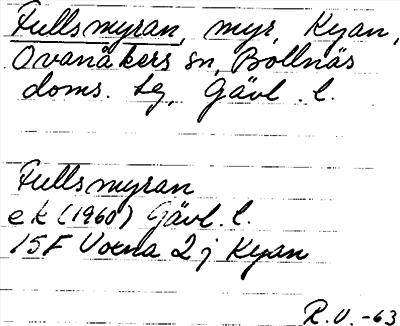 Fullsmyran, myr, Kyan,
Ovanåkers sn, Bollnäs
doms. tg, Gävl. l.
Fullsmyran
ek (1960) Gävl. l.
15F Voxna 2j Kyan
R.V. -63